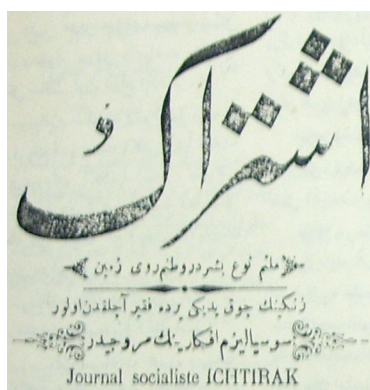 اشتراك
ملتم نوع بشردر وطنم روی زمین
زنكینك چوق یدیكی یرده فقیر آچلقدن اولور
سوسیالیزم افكارینك مروجیدر
Journal socialiste ICHTIRAK